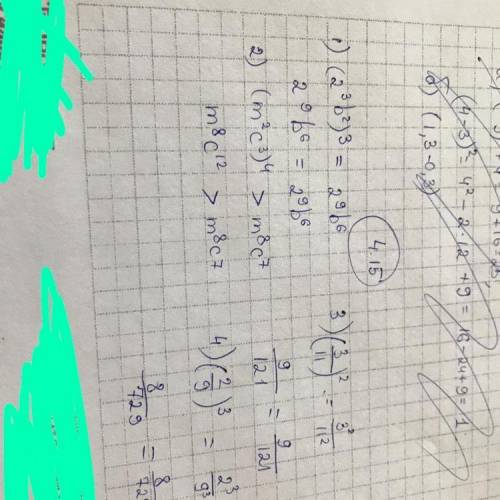 (4-3)² = 4² - 2·12 + 9 = 16-24+9 = 1
б) (1,3-0,3)
4.15
1) (2³b²)³ = 2⁹b⁶
2⁹b⁶ = 2⁹b⁶
2) (m²c³)⁴ > m⁸c⁷
m⁸c¹² > m⁸c⁷
3) (3/11)² = 3²/11²
9/121 = 9/121
4) (2/9)³ = 2³/9³
8/729 = 8/72